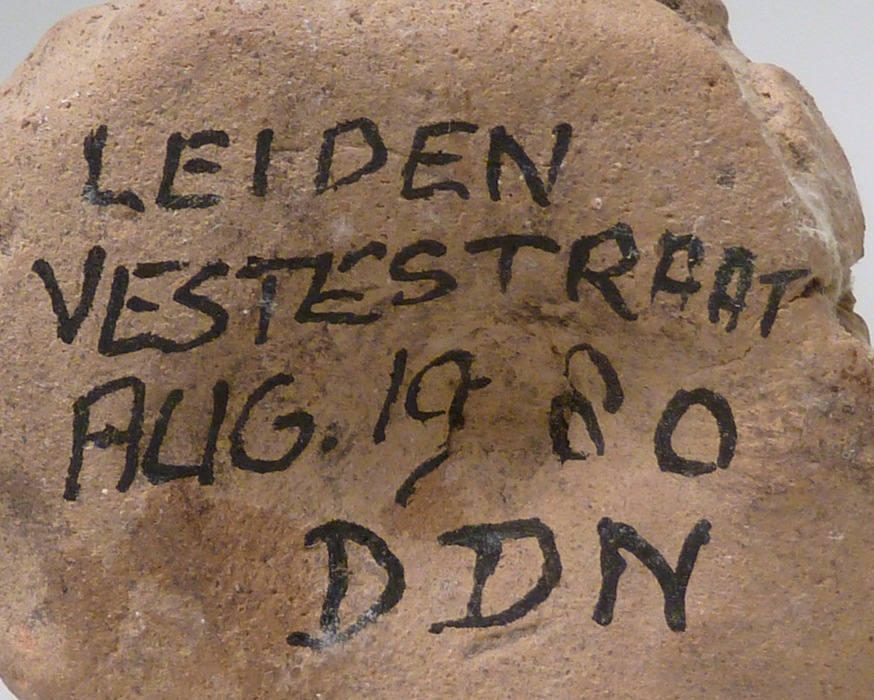 LEIDEN
VESTESTRAAT
AUG. 1980
DDN